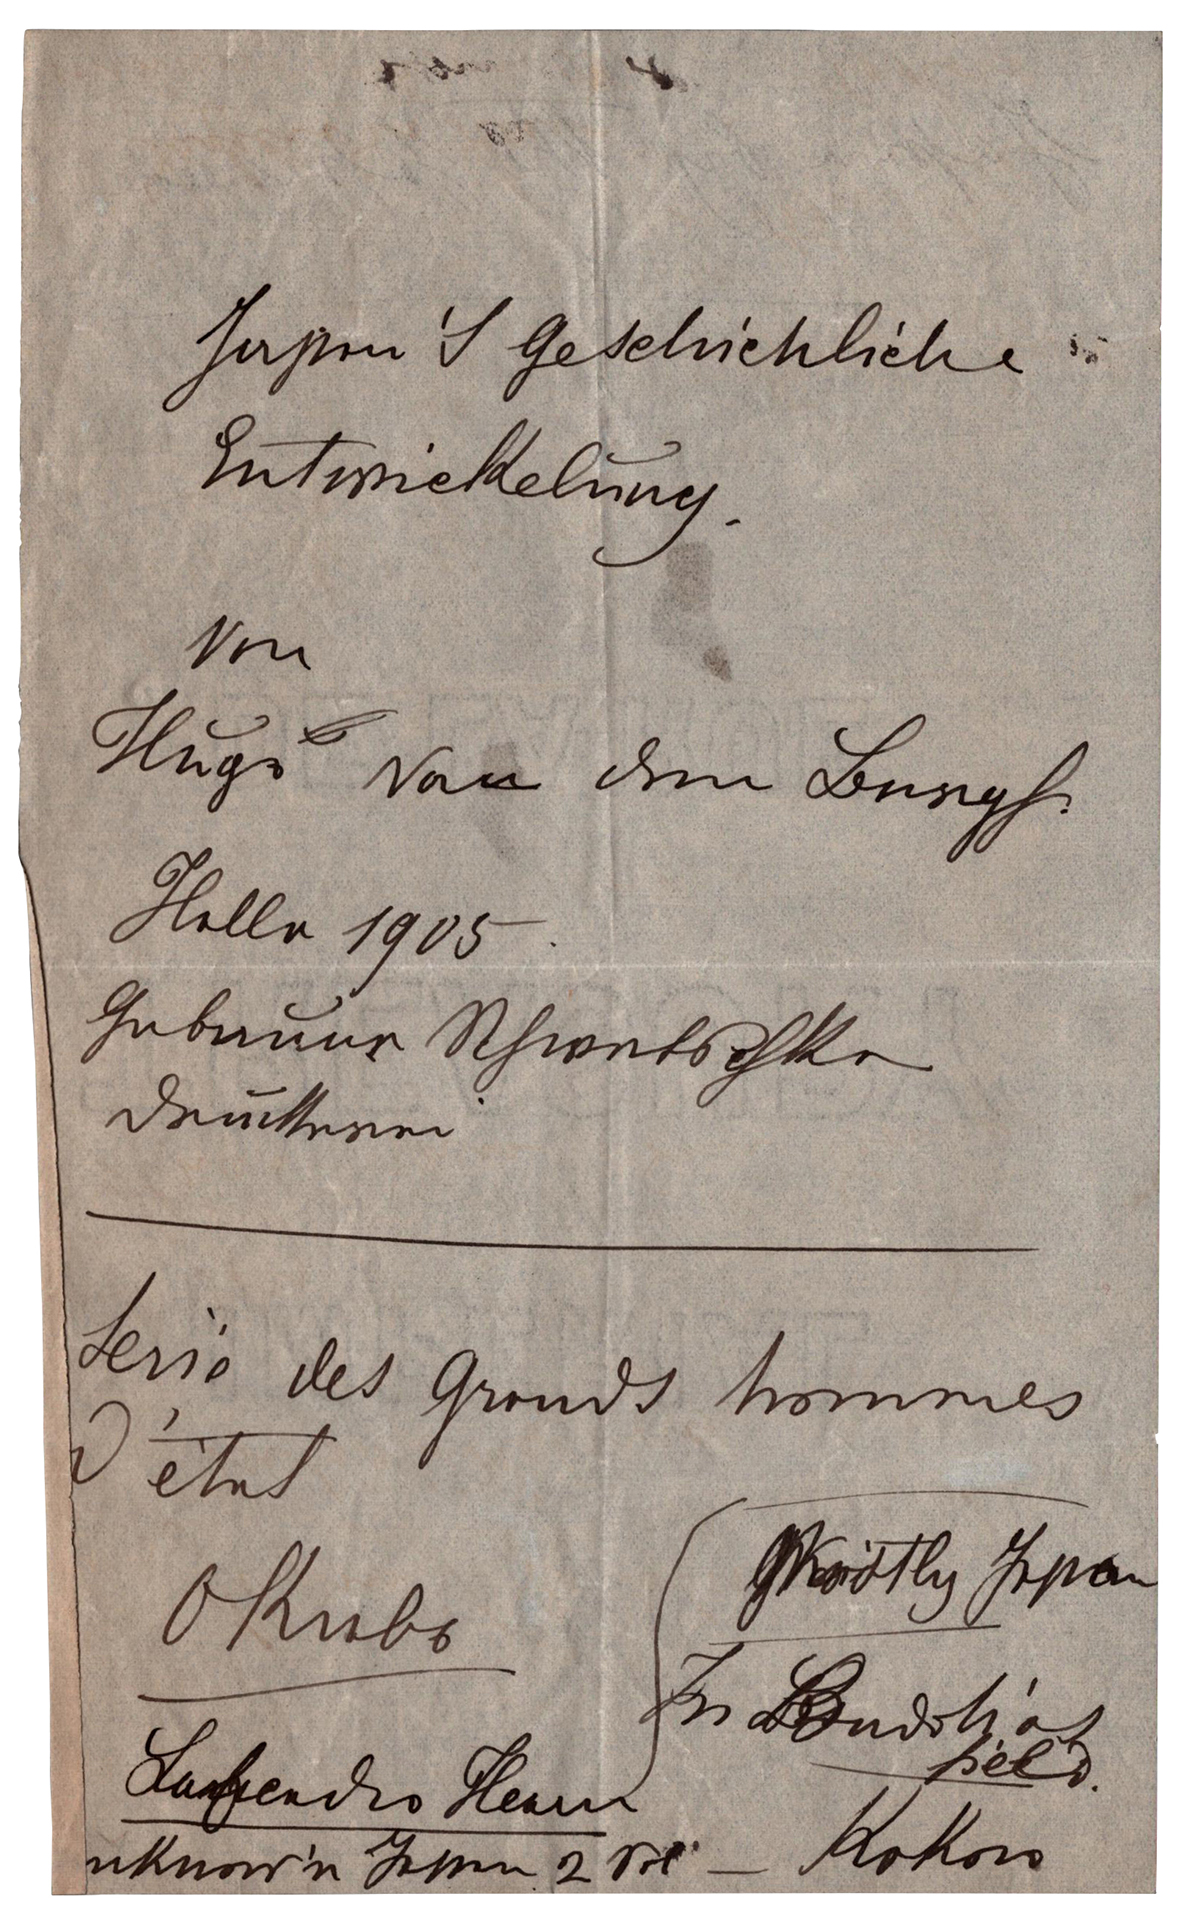 Japan's Geschichliche
Entwickelung.
Von
Hugo von den Bergh.
Halle 1905.
Gebauer Schwetschke
Druckerei
Serie des Grands hommes
D'état
Okubo
Lafcadio Hearn
unknow'n Japan 2 Vol –
Japan
In Buddhist
field.
Kokoro